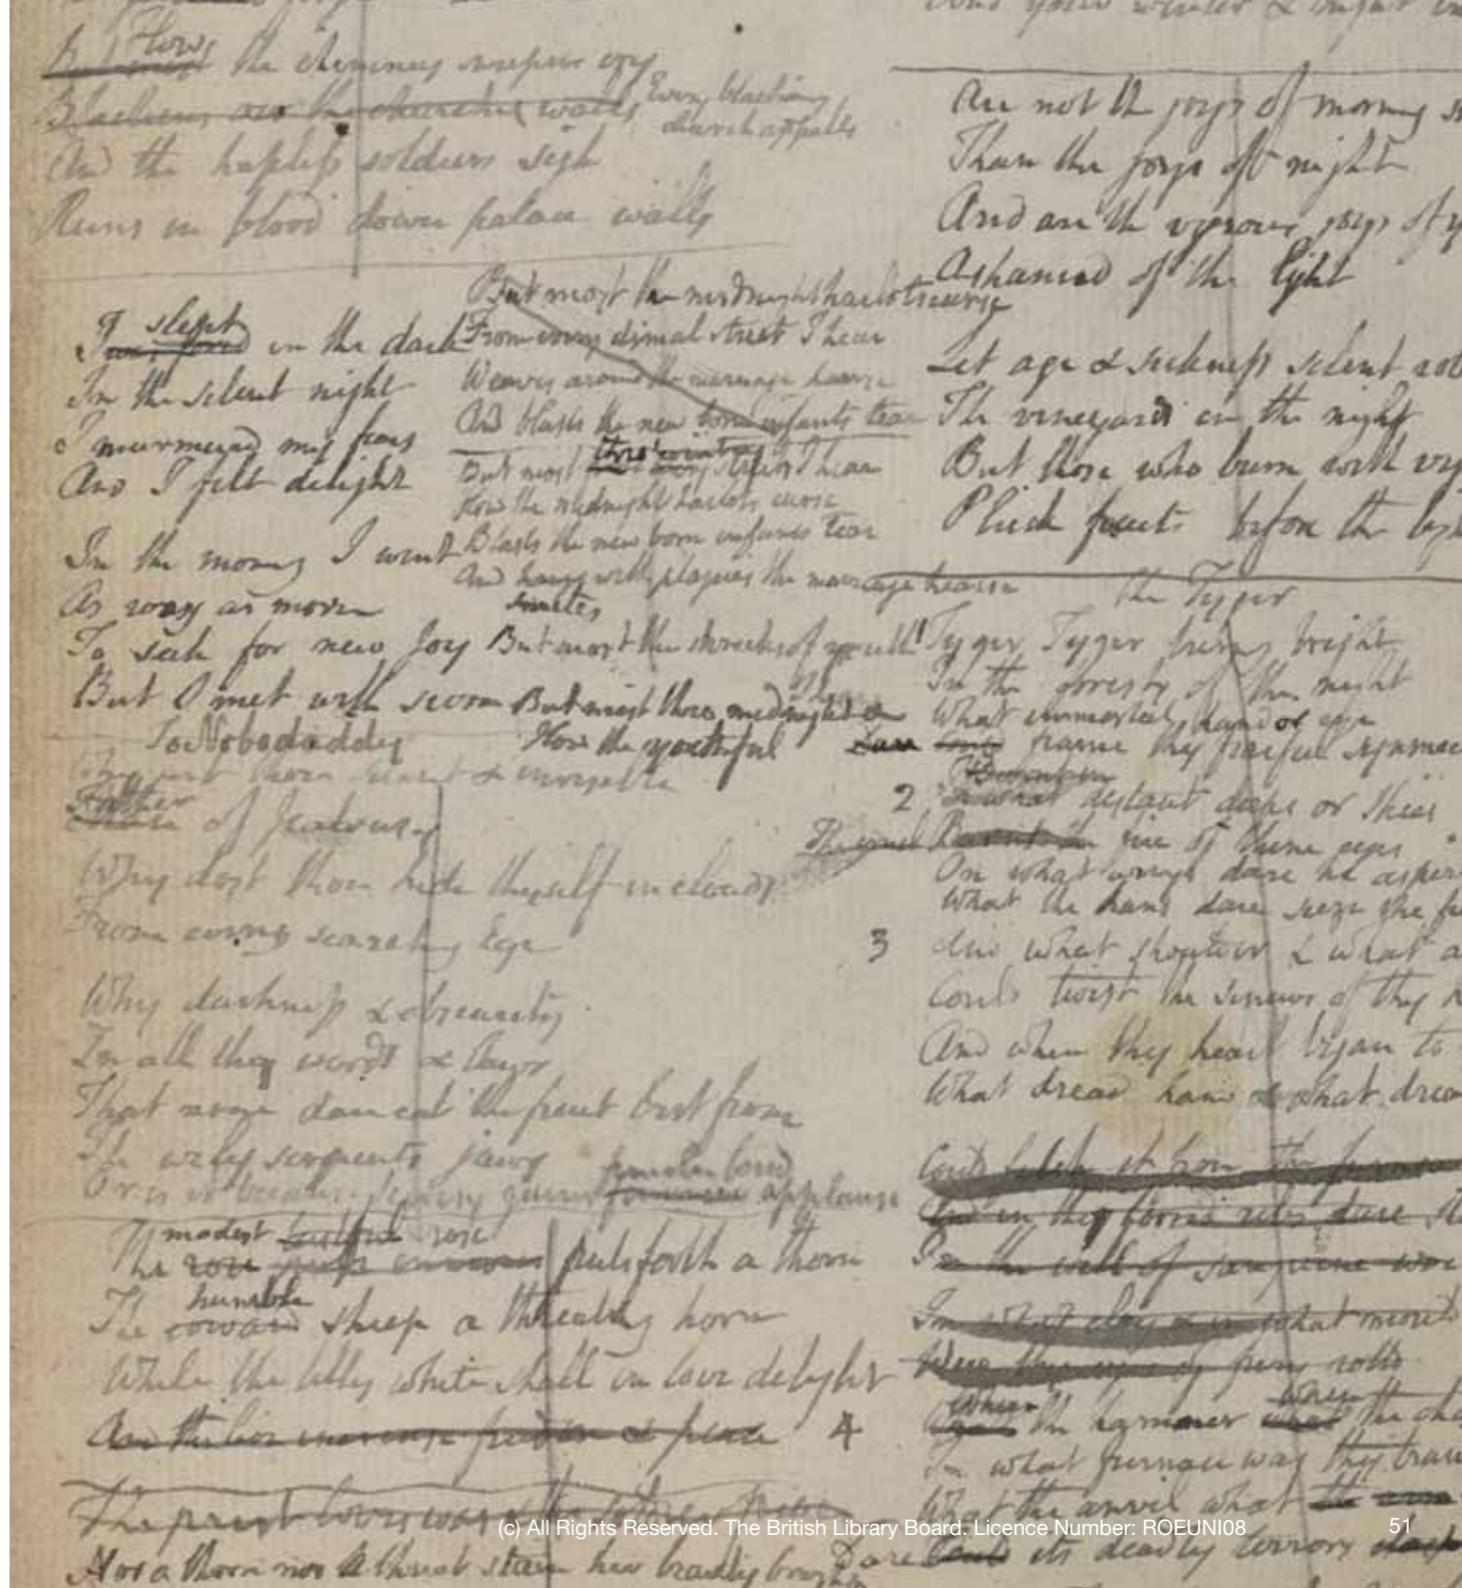 How the chimney sweepers cry
Blackens oer the churches walls
Every blackning
church appalls
And the hapless soldiers sigh
Runs in blood down palace walls
But most the midnight harlots curse
From every dismal street I hear
Weaves around the marriage hearse
And blasts the new born infants tear
But most thro wintry streets I hear
How the midnight harlots curse
Blasts the new born infants tear
And hangs with plagues the marriage hearse
smites
But most the shrieks of youth I
But most thro midnight &
How the youthful
slept
I in the dark
In the silent night
I murmured my fears
And I felt delight
In the morning I went
As rosy as morn
To seek for new Joy
But I met with scorn
To Nobodaddy
Why art thou silent & invisible
Father of Jealousy
Why dost thou hide thyself in clouds
From every searching Eye
Why darkness & obscurity
In all thy words & laws
That none dare eat the fruit but from
The wily serpents jaws
Or is it because Secresy gains applause
modest lustful rose
The rose puts envious puts forth a thorn
humble
The coward sheep a threatning horn
While the lilly white shall in love delight
And the lion increase freedom & peace
The priest loves war
Nor a thorn nor a threat stain her beauty bright
Are not the joys of morning
Than the joys of night
And are the vigrous joys of
Ashamed of the light
Let age & sickness silent rob
The vineyards in the night
But those who burn with
Pluck fruits before the
The Tyger
Tyger Tyger burning bright
In the forests of the night
What immortal hand or eye
Dare frame thy fearful symmet
2 In what distant deeps or skies
The cruel Burnt the fire of thine eyes
On what wings dare he aspire
What the hand dare sieze the
3 And what shoulder & what a
Could twist the sinews of thy
And when thy heart began to
What dread hand & what dread
Could fetch it from the furnace
And in thy horrid ribs dare
In the well of sanguine woe
In what clay & in what mould
Were thy eyes of fury rolld
4 Where the hammer where the cha
In what furnace was thy brain
What the anvil what the arm
Dare Could its deadly terrors clasp
(c) All Rights Reserved. The British Library Board. Licence Number: ROEUNI08
51